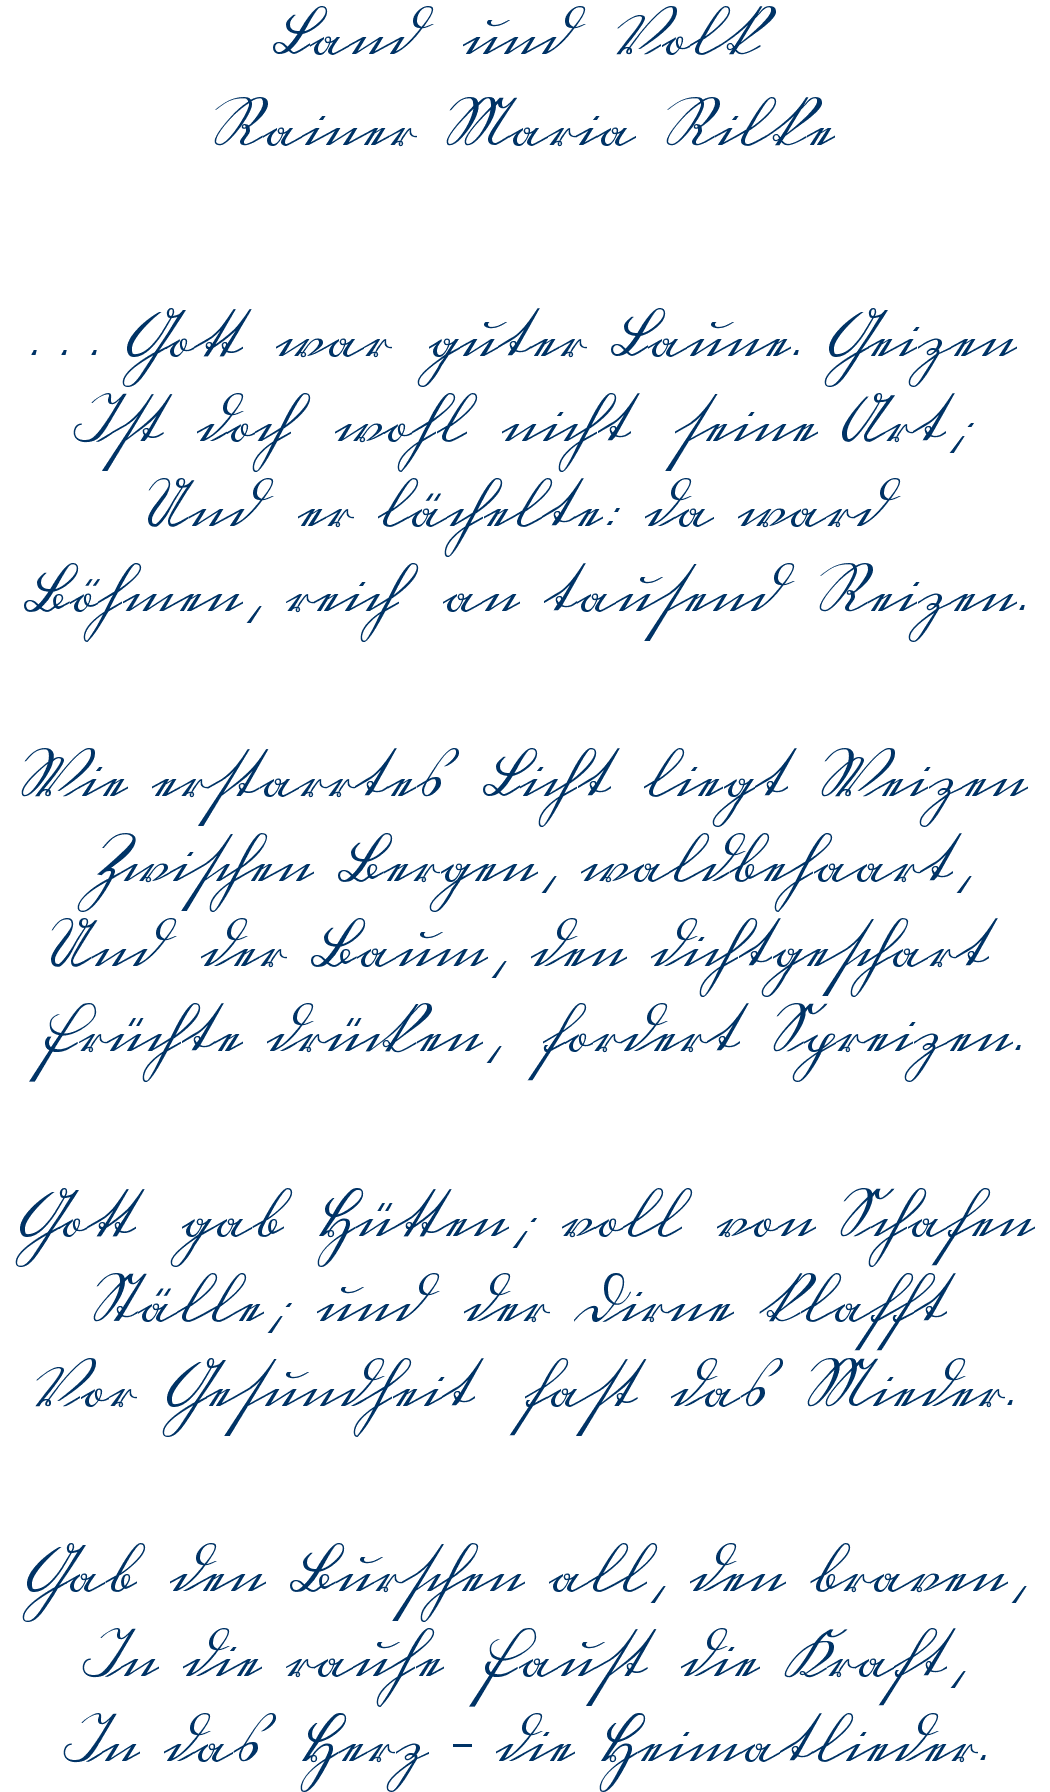 Land und Volk
Rainer Maria Rilke
... Gott war guter Laune. Geizen
Ist doch wohl nicht seine Art;
Und er lächelte: da ward
Böhmen, reich an tausend Reizen.
Wie erstarrtes Licht liegt Weizen
Zwischen Bergen, waldbehaart,
Und der Baum, den dichtgeschart
Früchte drücken, fordert Spreizen.
Gott gab Hütten; voll von Schafen
Ställe; und der Dirne klafft
Vor Gesundheit fast das Mieder.
Gab den Burschen all, den braven,
In die rauhe Faust die Kraft,
In das Herz – die Heimatlieder.